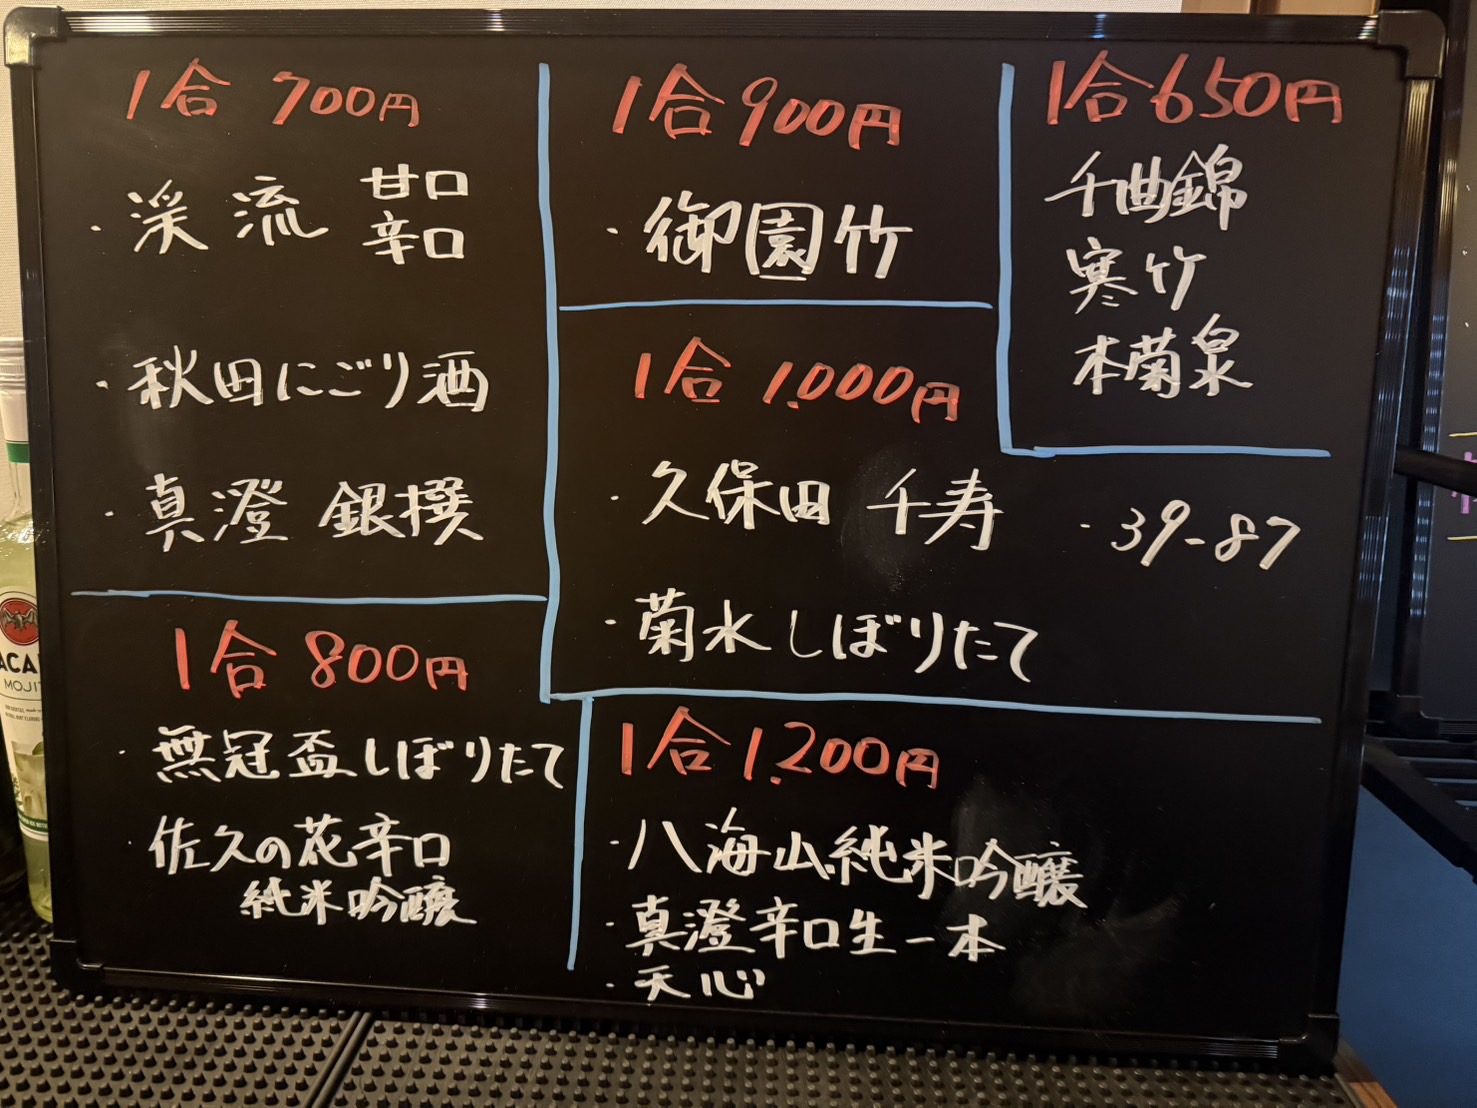 1合 700円
・渓流 甘口
辛口
・秋田にごり酒
・真澄 銀撰
1合 800円
・無冠盃しぼりたて
・佐久の花辛口
純米吟醸
1合 900円
・御園竹
1合 1.000円
・久保田 千寿
・39-87
・菊水しぼりたて
1合 1.200円
・八海山純米吟醸
・真澄辛口生一本
・天心
1合 650円
千曲錦
寒竹
本菊泉
ACA
MOJIT